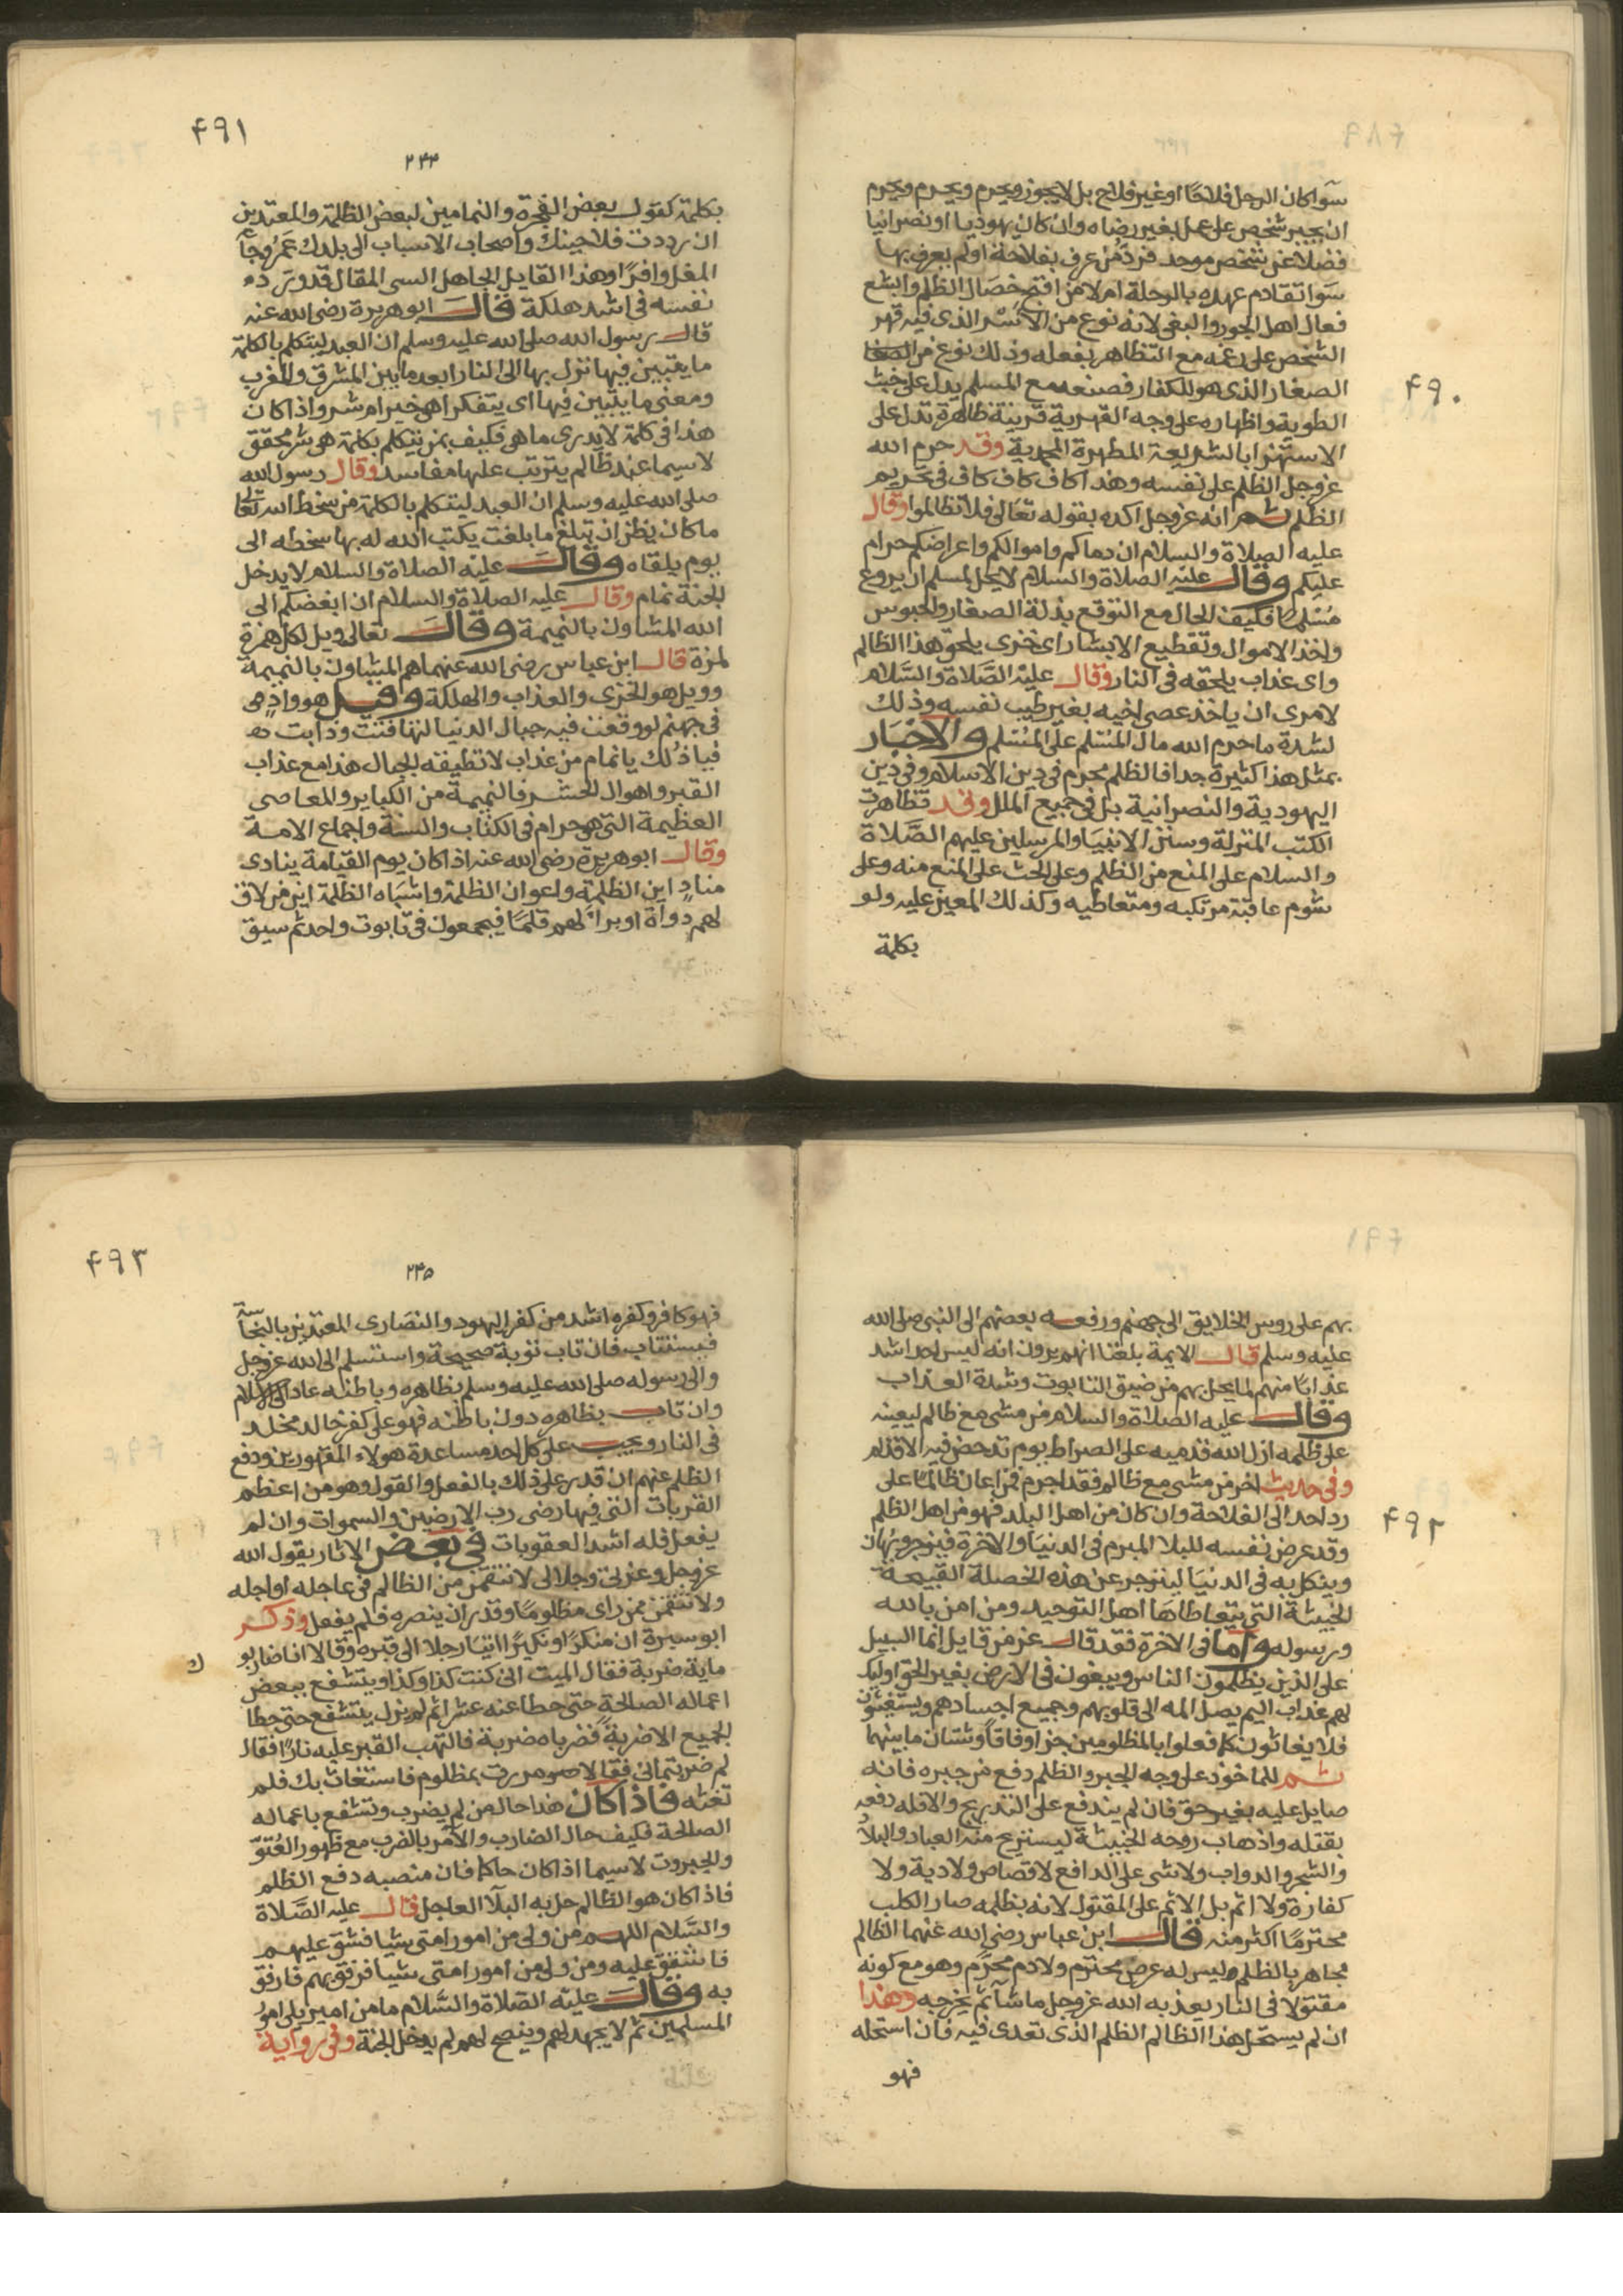 سوا كان الرجل فلاحا او غير فلاح بل لا يجوز ويحرم ويحرم ويحرم
ان يجبر شخص على عمل بغير رضاه وان كان يهوديا او نصرانيا
فضلا عن شخص موحد فرد من عرف بفلاحة او لم يعرف بها
سوا تقادم عهده بالرحلة ام لا من اقبح خصال الظلم وابشع
فعال اهل الجور والبغى لانه نوع من الاسر الذى فيه قهر
الشخص على رغمه مع التظاهر بفعله وذلك نوع من
الصغار الذى هو للكفار فصنعه مع المسلم يدل على خبث
٤٩٠
الطوية واظهاره على وجه القهرية قرينة ظاهرة تدل على
الاستهزا بالشريعة المطهرة المحمدية وقد حرم الله
عز وجل الظلم على نفسه وهذا كاف كاف كاف فى تحريم
الظلم ثم انه عز وجل اكده بقوله تعالى فلا تظالموا وقال
عليه الصلاة والسلام ان دماكم واموالكم واعراضكم حرام
عليكم وقال عليه الصلاة والسلام لا يحل لمسلم ان يروع
مسلما فكيف الحال مع التوقع بذلة الصغار والحبوس
واخذ الاموال وتقطيع الابشار اى خزى يلحق هذا الظالم
واى عذاب يلحقه فى النار وقال عليه الصلاة والسلام
لامرى ان ياخذ عصى اخيه بغير طيب نفسه وذلك
لشدة ما حرم الله مال المسلم على المسلم والاخبار
بمثل هذا كثيرة جدا فالظلم محرم فى دين الاسلام وفى دين
اليهودية والنصرانية بل فى جميع الملل وقد تظاهرت
الكتب المنزلة وسنن الانبيا والمرسلين عليهم الصلاة
والسلام على المنع من الظلم وعلى الحث على المنع منه وعلى
شوم عاقبة مرتكبه ومتعاطيه وكذلك المعين عليه ولو
بكلمة
٤٩١
٢٤٤
بكلمة كقول بعض الفجرة والنمامين لبعض الظلمة والمعتدين
ان رددت فلاحينك واصحاب الاسباب الى بلدك عمر وجا
المغل وافرا وهذا القايل الجاهل السى المقال قد ورد
نفسه فى اشد هلكة قال ابو هريرة رضى الله عنه
قال رسول الله صلى الله عليه وسلم ان العبد ليتكلم بالكلمة
ما يتبين فيها تزل بها الى النار ابعد ما بين المشرق والمغرب
ومعنى ما يتبين فيها اى يتفكر اهى خير ام شر واذا كان
هذا فى كلمة لا يدرى ما هى فكيف بمن يتكلم بكلمة هى شر محقق
لاسيما عند ظالم يترتب عليها مفاسد وقال رسول الله
صلى الله عليه وسلم ان العبد ليتكلم بالكلمة من سخط الله تعالى
ما كان يظن ان تبلغ ما بلغت يكتب الله له بها سخطه الى
يوم يلقاه وقال عليه الصلاة والسلام لا يدخل
الجنة نمام وقال عليه الصلاة والسلام ان ابغضكم الى
الله المشاون بالنميمة وقال تعالى ويل لكل همزة
لمزة قال ابن عباس رضى الله عنهما هم المشاون بالنميمة
وويل هو الخزى والعذاب والهلكة وقيل هو واد
فى جهنم لو وقعت فيه جبال الدنيا لفتتت وذابت
فيا ذلك يا نمام من عذاب لا تطيقه الجبال هذا مع عذاب
القبر واهوال الحشر فالنميمة من الكباير والمعاصى
العظيمة التى هى حرام فى الكتاب والسنة واجماع الامة
وقال ابو هريرة رضى الله عنه اذا كان يوم القيامة ينادى
مناد اين الظلمة واعوان الظلمة واشباه الظلمة اين من لاق
لهم دواة او برا لهم قلما فيجمعون فى تابوت واحد ثم سيق
بهم على روس الخلايق الى جهنم ورفعه بعضهم الى النبى صلى الله
عليه وسلم قال الايمة بلغنا انهم يرون انه ليس احد اشد
عذابا منهم لما يحل بهم من ضيق التابوت وشدة العذاب
وقال عليه الصلاة والسلام من مشى مع ظالم ليعينه
على ظلمه ازل الله قدميه على الصراط يوم تدحض فيه الاقدام
وفى حديث اخر من مشى مع ظالم فقد اجرم فمن اعان ظالما على
رد احد الى الفلاحة وان كان من اهل البلد فهو من اهل الظلم
٤٩٢
وقد عرض نفسه للبلا المبرم فى الدنيا والاخرة فيزجر ويهان
وينكل به فى الدنيا لينزجر عن هذه الخصلة القبيحة
الخبيثة التى يتعاطاها اهل التوحيد ومن امن بالله
ورسوله واما فى الاخرة فقد قال عز من قايل انما السبيل
على الذين يظلمون الناس ويبغون فى الارض بغير الحق اوليك
لهم عذاب اليم يصل المه الى قلوبهم وجميع اجسادهم ويستغيثون
فلا يغاثون كما فعلوا بالمظلومين جزا وفاقا وشتان ما بينهما
ثم للماخوذ على وجه الجبر والظلم دفع من جبره فانه
صايل عليه بغير حق فان لم يندفع على التدريج والا فله دفعه
بقتله واذهاب روحه الخبيثة ليستريح منه العباد والبلاد
والشجر والدواب ولا شى على الدافع لا قصاص ولا دية ولا
كفارة ولا اثم بل الاثم على المقتول لانه بظلمه صار الكلب
محترما اكثر منه قال ابن عباس رضى الله عنهما الظالم
مجاهر بالظلم وليس له عرض محترم ولا دم محرم وهو مع كونه
مقتولا فى النار يعذبه الله عز وجل ما شا ثم يخرجه وهذا
ان لم يستحل هذا الظالم الظلم الذى تعدى فيه فان استحله
فهو
٤٩٣
٢٤٥
فهو كافر وكفره اشد من كفر اليهود والنصارى المعتدين بالنجاسة
فيستتاب فان تاب توبة صحيحة واستسلم الى الله عز وجل
والى رسوله صلى الله عليه وسلم بظاهره وباطنه عاد الى الاسلام
وان تاب بظاهره دون باطنه فهو على كفر خالد مخلد
فى النار ويجب على كل احد مساعدة هولاء المقهورين ودفع
الظلم عنهم ان قدر على ذلك بالفعل والقول وهو من اعظم
القربات التى فيها رضى رب الارضين والسموات وان لم
يفعل فله اشد العقوبات فى بعض الاثار يقول الله
عز وجل وعزتى وجلالى لانتقمن من الظالم فى عاجله او اجله
ولانتقمن ممن راى مظلوما وقدر ان ينصره فلم يفعل وذكر
ابو سبرة ان منكرا او نكيرا اتيا رجلا الى قبره وقالا انا ضاربوك
ماية ضربة فقال الميت انى كنت كذا وكذا ويتشفع ببعض
اعماله الصالحة حتى حطا عنه عشرا ثم لم يزل يتشفع حتى حطا
الجميع الا ضربة فضرباه ضربة فالتهب القبر عليه نارا فقال
لم ضربتمانى فقالا مررت بمظلوم فاستغاث بك فلم
تغثه فاذا كان هذا حال من لم يضرب وتشفع باعماله
الصالحة فكيف حال الضارب والآمر بالضرب مع ظهور العتو
والجبروت لاسيما اذا كان حاكما فان منصبه دفع الظلم
فاذا كان هو الظالم حل به البلا العاجل قال عليه الصلاة
والسلام اللهم من ولى من امور امتى شيا فشق عليهم
فاشقق عليه ومن ولى من امور امتى شيا فرفق بهم فارفق
به وقال عليه الصلاة والسلام ما من امير يلى امور
المسلمين ثم لا يجهد لهم وينصح لهم لم يدخل الجنة وفى رواية